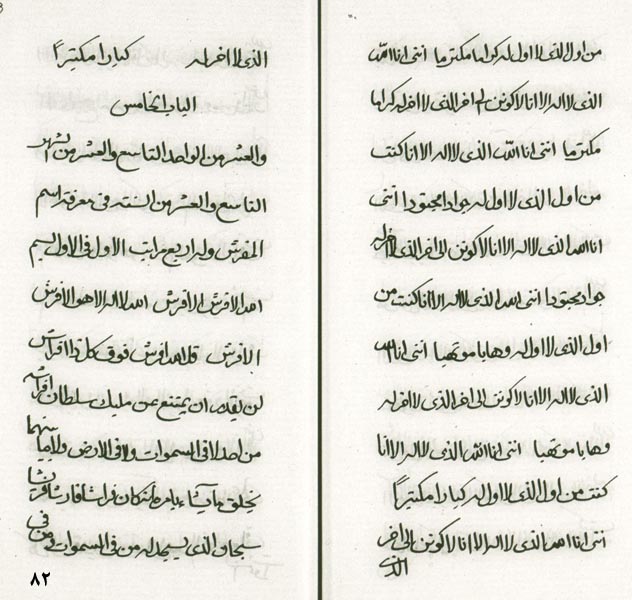 من اول الذی لا اول له کراما مکترما اننی انا الله
الذی لا اله الا انا لاکونن الی اخر الذی لا اخر له کراما
مکترما اننی انا الله الذی لا اله الا انا کنت
من اول الذی لا اول له جوادا مجتودا اننی
انا الله الذی لا اله الا انا لاکونن الی اخر الذی لا اخر له
جوادا مجتودا اننی انا الله الذی لا اله الا انا کنت من
اول الذی لا اول له وهابا موتهبا اننی انا الله
الذی لا اله الا انا لاکونن الی اخر الذی لا اخر له
وهابا موتهبا اننی انا الله الذی لا اله الا انا
کنت من اول الذی لا اول له کبارا مکتبرا
اننی انا الله الذی لا اله الا انا لاکونن الی اخر
الذی
الذی لا اخر له کبارا مکتبرا
الباب الخامس
والعشر من الواحد التاسع والعشر من الشهر
التاسع والعشر من السنة فی معرفة اسم
المفرش وله اربع مراتب الاول فی الاول بسم
الله الافرش الافرش الله لا اله الا هو الافرش
الافرش قل الله افرش فوق کل ذا افراش
لن یقدر ان یمتنع عن ملیک سلطان افراشه
من احد لا فی السموات ولا فی الارض ولا ما بینهما
یخلق ما یشاء بامره انه کان فراشا فارشا فریشا
سبحان الذی یسجد له من فی السموات ومن فی
۸۲